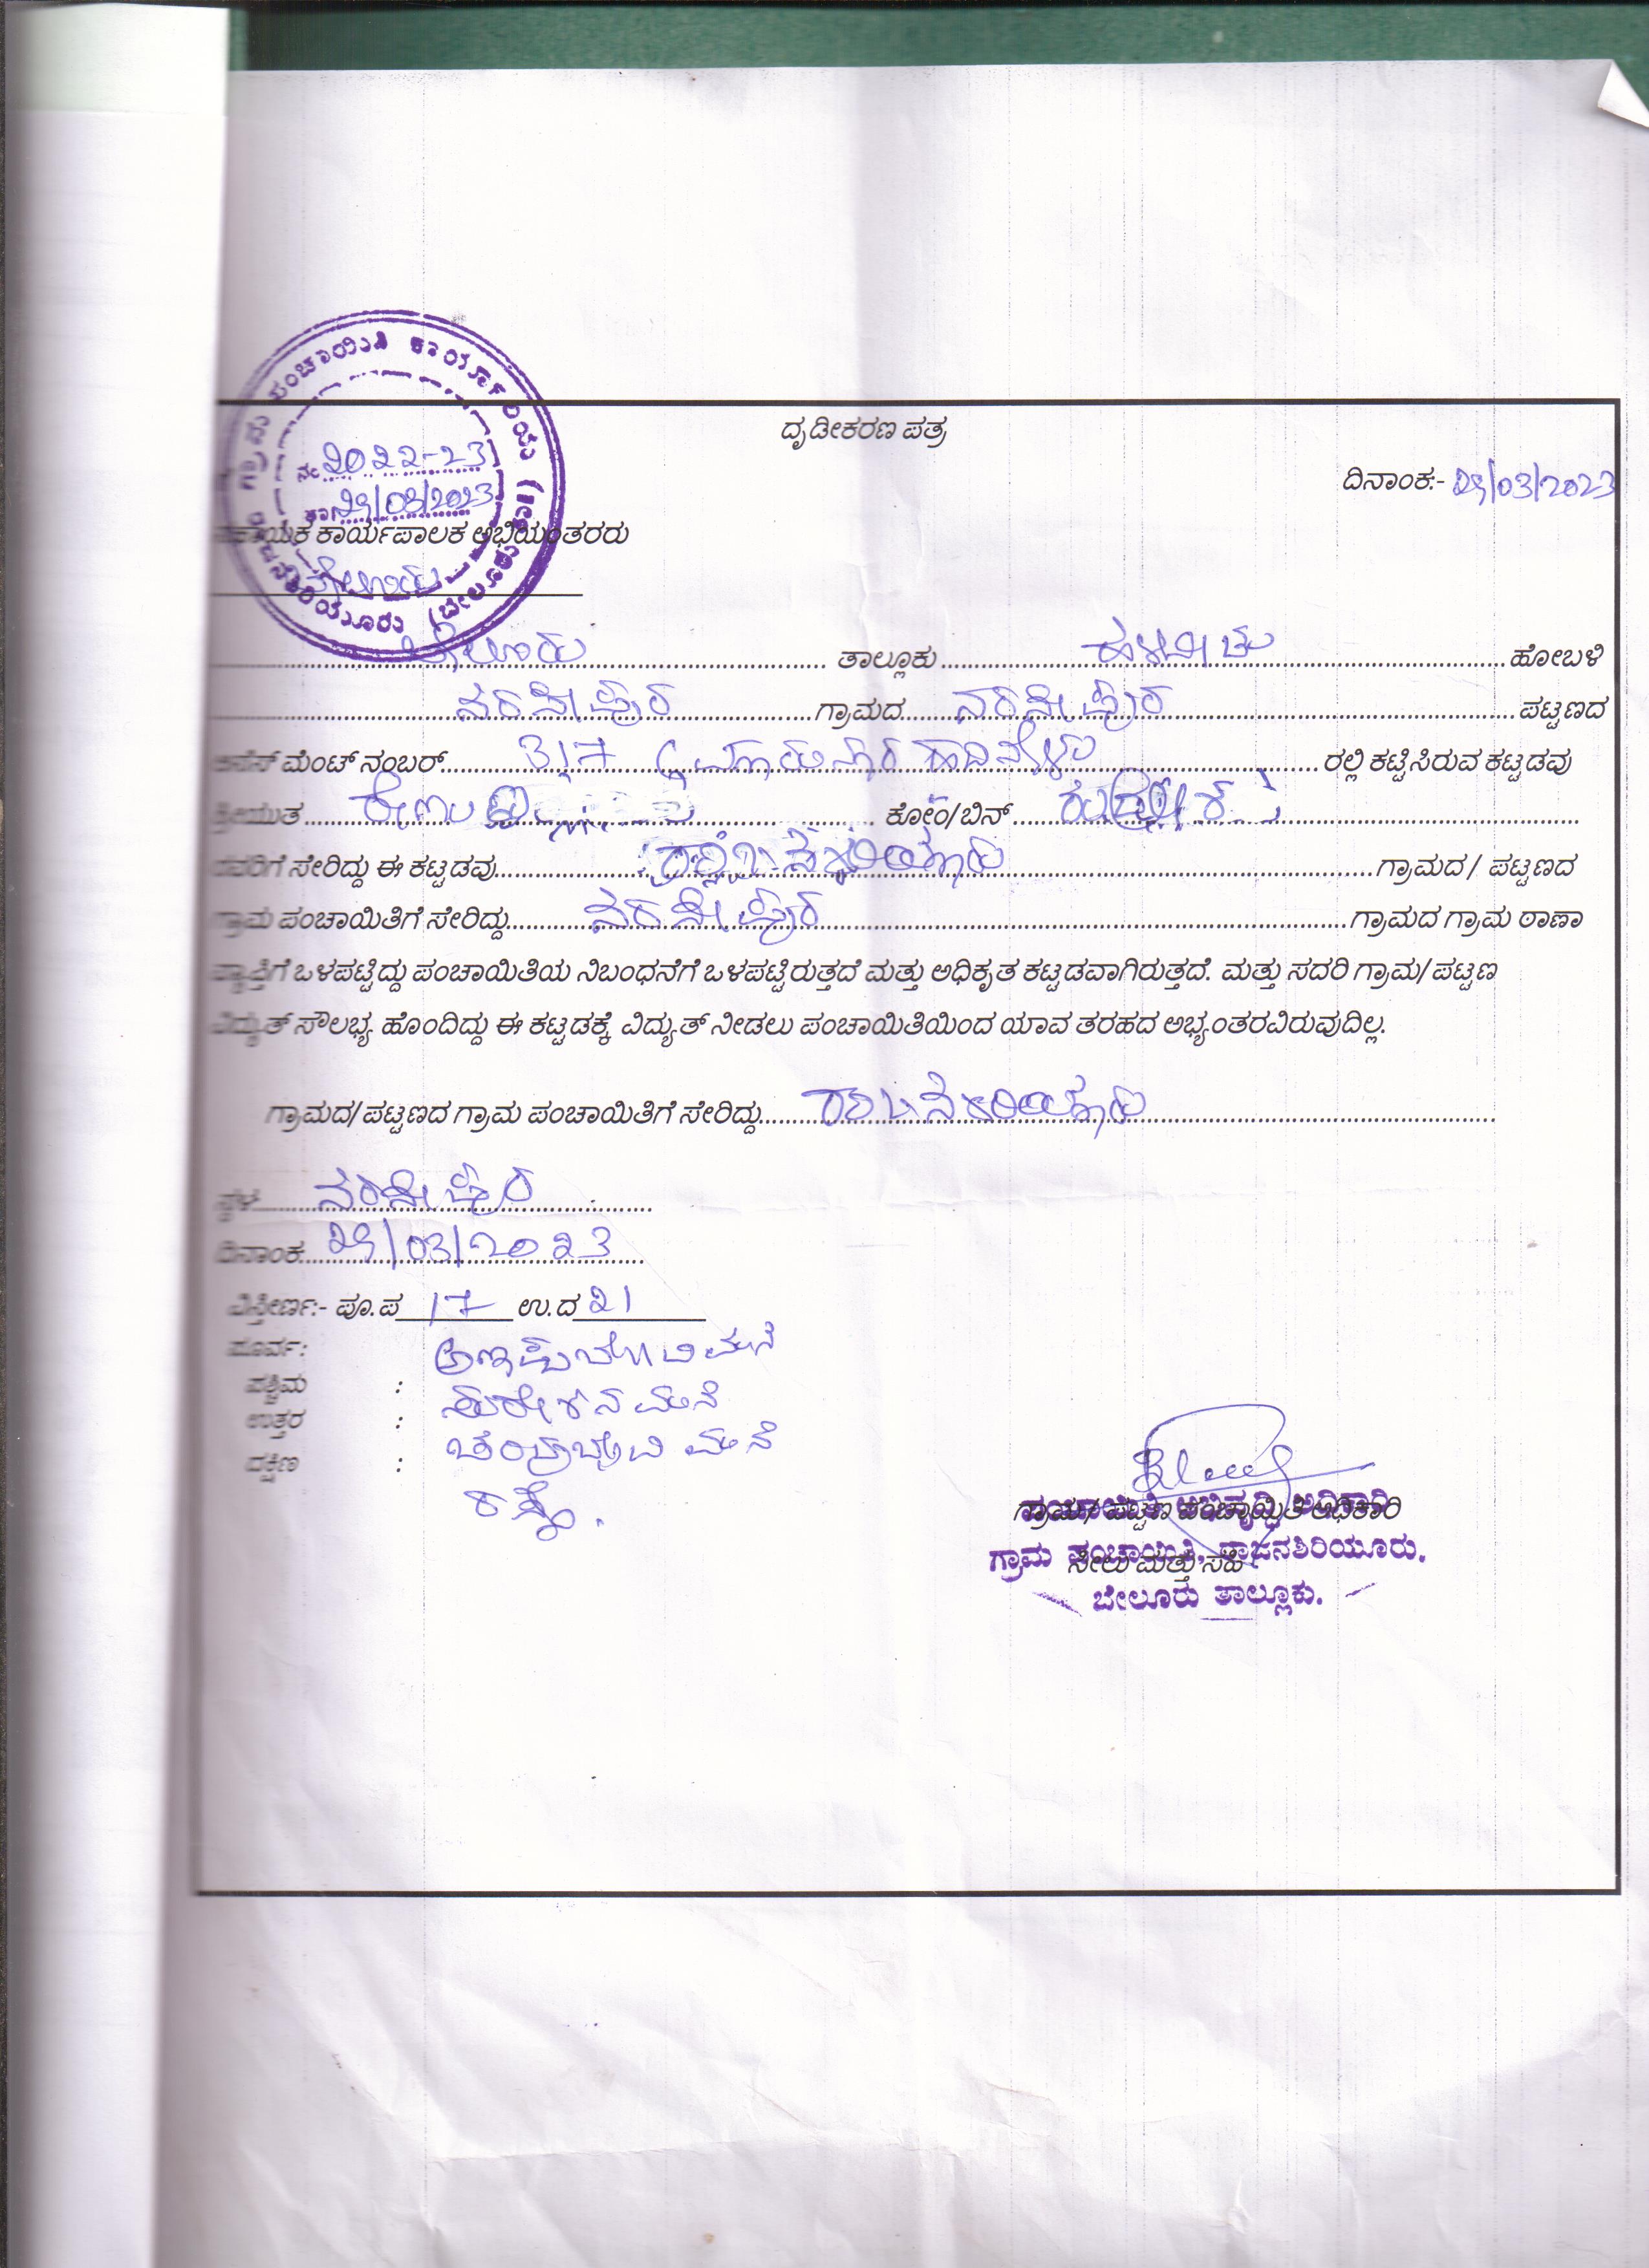 ಗ್ರಾಮ ಪಂಚಾಯಿತಿ ಕಾರ್ಯಾಲಯ
ದೃಡೀಕರಣ ಪತ್ರ
ನಂ 2022-23
ದಿನಾಂಕ:- 29/03/2023
ತಾ 29/03/2023
ಸಹಾಯಕ ಕಾರ್ಯಪಾಲಕ ಅಭಿಯಂತರರು
ಬೇಲೂರು
ಬೇಲೂರು ತಾಲ್ಲೂಕು ಹಳೇಬೀಡು ಹೋಬಳಿ
ನರಸೀಪುರ ಗ್ರಾಮದ ನರಸೀಪುರ ಪಟ್ಟಣದ
ಅಸೆಸ್ ಮೆಂಟ್ ನಂಬರ್ 317 ರಲ್ಲಿ ಕಟ್ಟಿಸಿರುವ ಕಟ್ಟಡವು
ಶ್ರೀಯುತ ಕೋಂ/ಬಿನ್
ರವರಿಗೆ ಸೇರಿದ್ದು ಈ ಕಟ್ಟಡವು ಗ್ರಾಮದ / ಪಟ್ಟಣದ
ಗ್ರಾಮ ಪಂಚಾಯಿತಿಗೆ ಸೇರಿದ್ದು ನರಸೀಪುರ ಗ್ರಾಮದ ಗ್ರಾಮ ಠಾಣಾ
ವ್ಯಾಪ್ತಿಗೆ ಒಳಪಟ್ಟಿದ್ದು ಪಂಚಾಯಿತಿಯ ನಿಬಂಧನೆಗೆ ಒಳಪಟ್ಟಿರುತ್ತದೆ ಮತ್ತು ಅಧಿಕೃತ ಕಟ್ಟಡವಾಗಿರುತ್ತದೆ. ಮತ್ತು ಸದರಿ ಗ್ರಾಮ/ಪಟ್ಟಣ
ವಿದ್ಯುತ್ ಸೌಲಭ್ಯ ಹೊಂದಿದ್ದು ಈ ಕಟ್ಟಡಕ್ಕೆ ವಿದ್ಯುತ್ ನೀಡಲು ಪಂಚಾಯಿತಿಯಿಂದ ಯಾವ ತರಹದ ಅಭ್ಯಂತರವಿರುವುದಿಲ್ಲ.
ಗ್ರಾಮದ/ಪಟ್ಟಣದ ಗ್ರಾಮ ಪಂಚಾಯಿತಿಗೆ ಸೇರಿದ್ದು ರಾಜನಶಿರಿಯೂರು
ಸ್ಥಳ ನರಸೀಪುರ
ದಿನಾಂಕ 29/03/2023
ವಿಸ್ತೀರ್ಣ:- ಪೂ.ಪ 17 ಉ.ದ 21
ಪೂರ್ವ: ಮನೆ
ಪಶ್ಚಿಮ : ಸುರೇಶನ ಮನೆ
ಉತ್ತರ : ಮನೆ
ದಕ್ಷಿಣ : ರಸ್ತೆ.
ಪಂಚಾಯಿತಿ ಅಭಿವೃದ್ಧಿ ಅಧಿಕಾರಿ
ಗ್ರಾಮ / ಪಟ್ಟಣ ಪಂಚಾಯ್ತಿತಿ ಅಧಿಕಾರಿ
ಗ್ರಾಮ ಪಂಚಾಯಿತಿ, ರಾಜನಶಿರಿಯೂರು.
ಸೀಲು ಮತ್ತು ಸಹಿ
ಬೇಲೂರು ತಾಲ್ಲೂಕು.